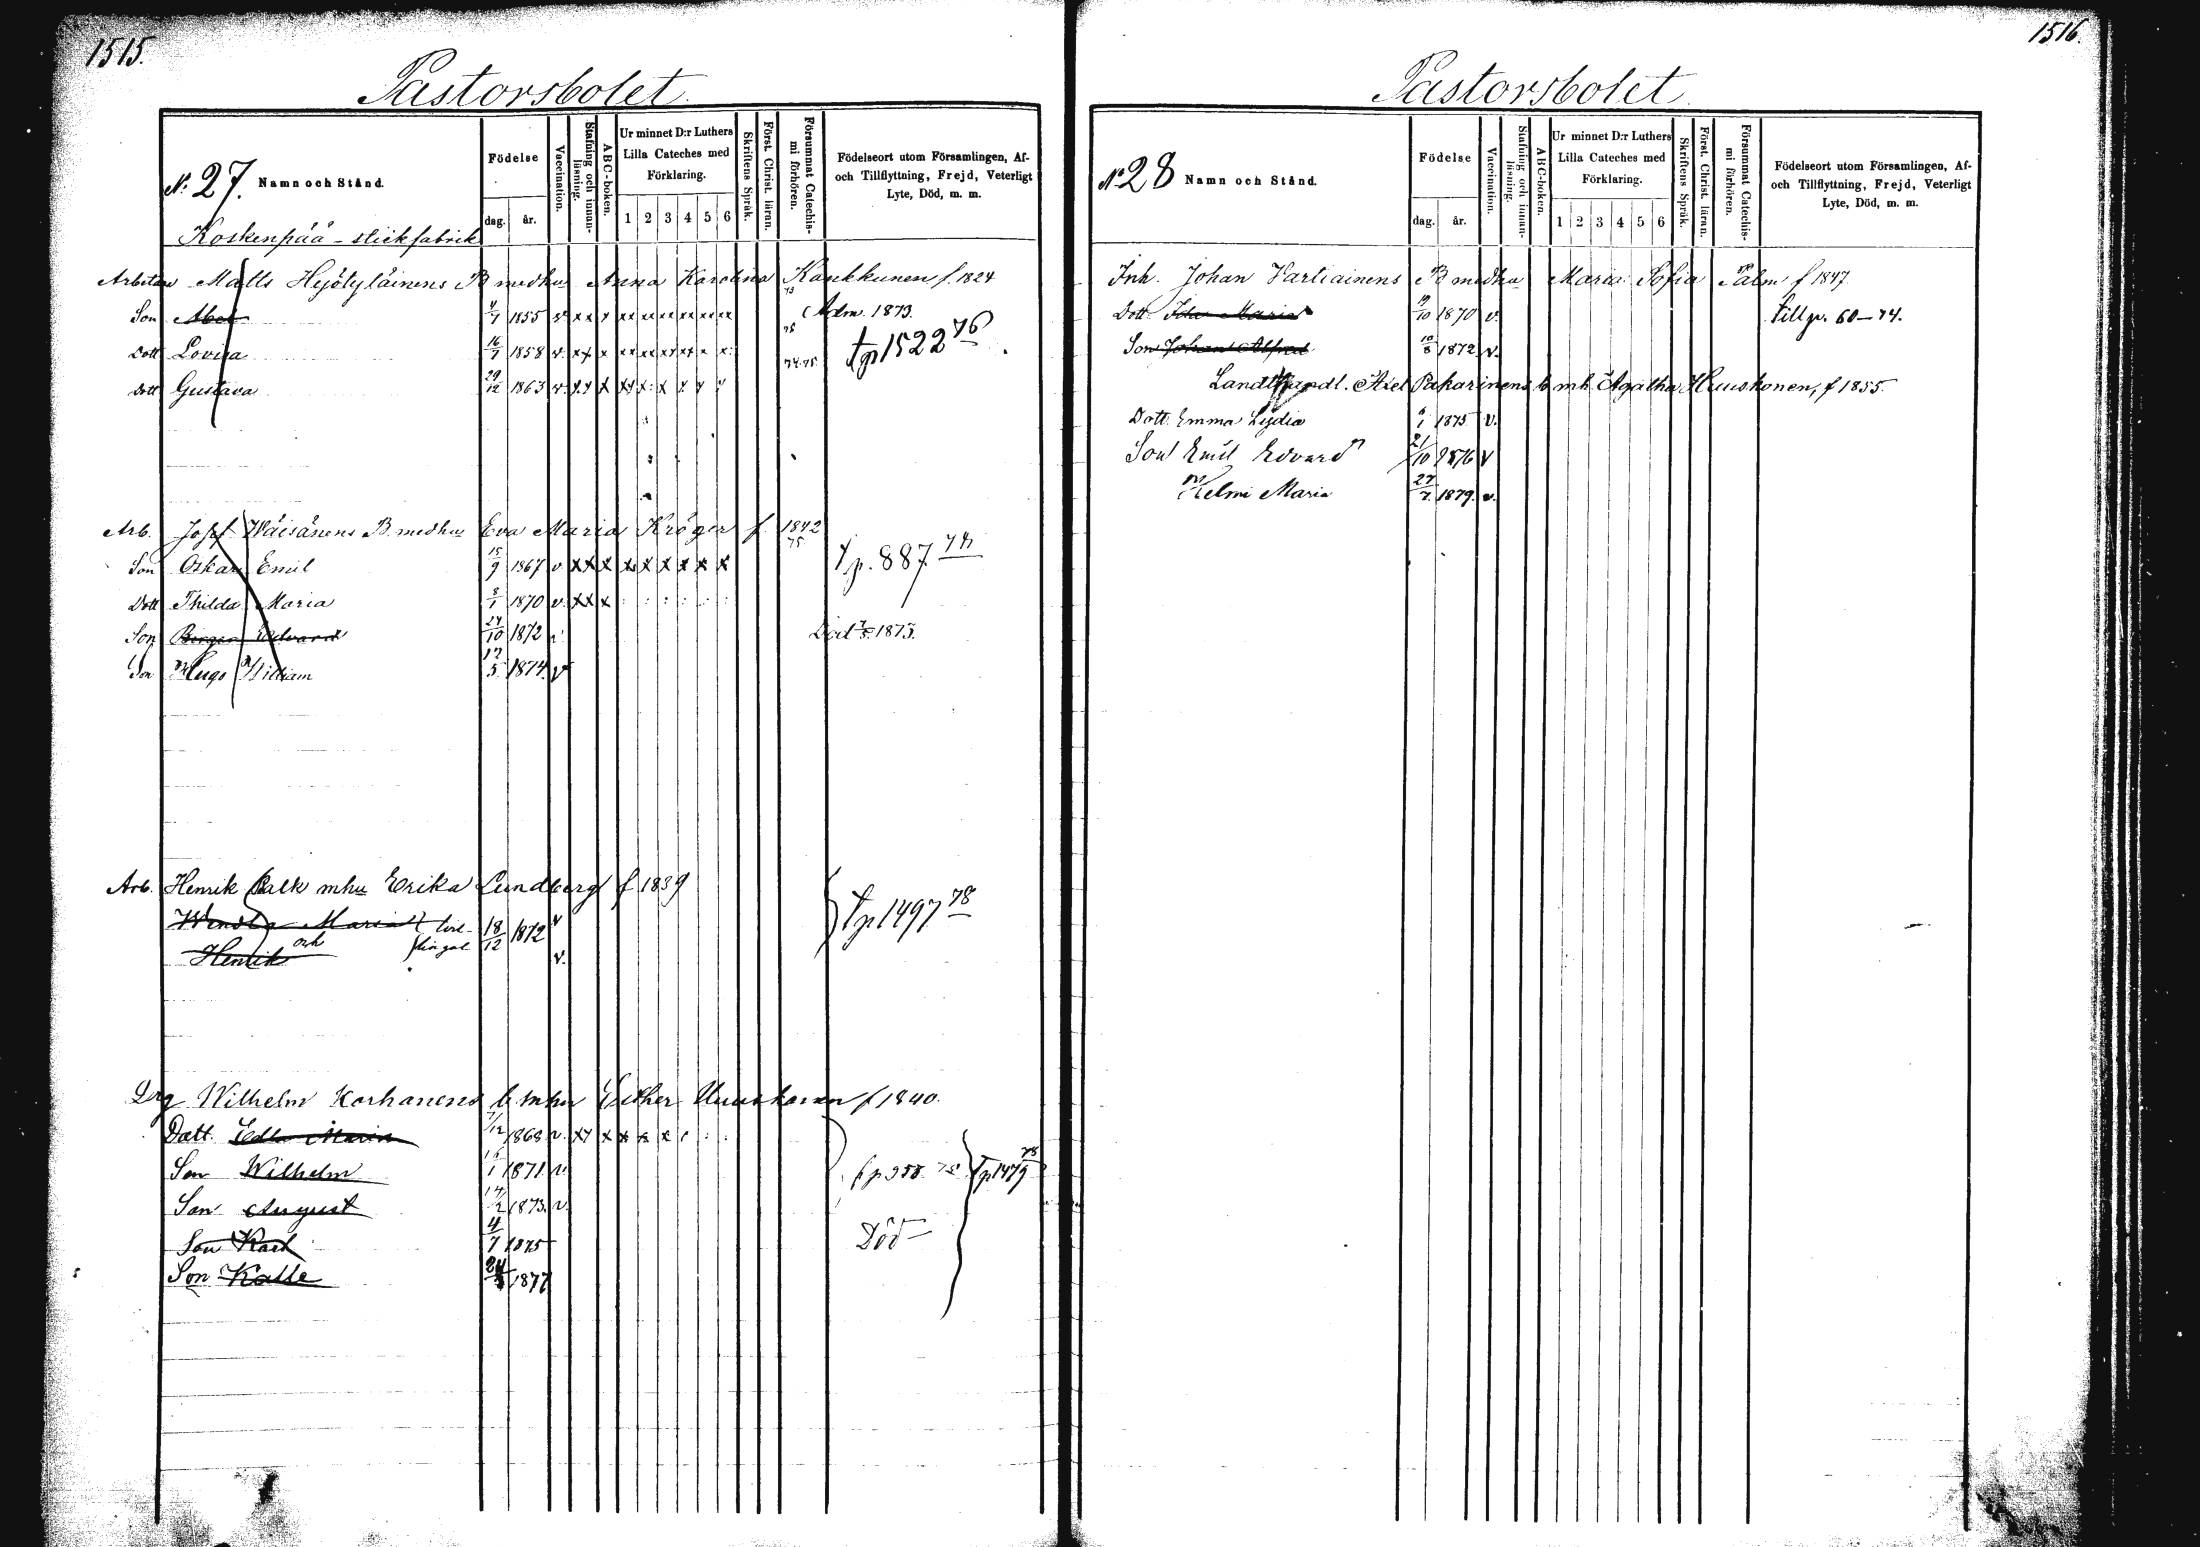 1515.
Pastorsbolet
N: 27. Namn och Stånd.
Födelse
dag. år.
Vaccination.
Stafning och innanläsning.
ABC-boken.
Ur minnet D:r Luthers Lilla Cateches med Förklaring.
1 2 3 4 5 6
Skriftens Språk.
Först. Christ. läran.
Försummat Catechismi förhören.
Födelseort utom Församlingen, Af- och Tillflyttning, Frejd, Veterligt Lyte, Död, m. m.
Koskenpää - stickfabrik
Arbetare Matts Hyötyläinens B medhu Anna Karolina Kaukkunen f. 1824
Son Abel 4/7 1855 v xx x xx xx xx xx xx xx 73 Adm. 1873.
Dott Lovisa 16/7 1858 v. xx x xx xx xx xx x x: 75 tp 1522 76
Dott Gustava 29/12 1863 v. xx x xx x: x x x x 74.75.
Arb. Josef Wäisänens B. medhu Eva Maria Kröger f. 1842
Son Oskar Emil 15/9 1867 v xx x x x x x x x 75 tp. 887
Dott Thilda Maria 8/1 1870 v. xx x : : : : : :
Son Edvard 24/10 1872 v. Död 7/5 1873.
Son Hugo William 17/5 1874. v
Arb. Henrik Palk mhu Erika Lundberg f 1839
Maria v
och 18/12 1872 tp 1497 78
Henrik v.
Drg Wilhelm Korhonens b. mhu Esther f 1840.
Dott. Edla Maria 7/12 1868 v. xx x x x x : : :
Son Wilhelm 1871. v. tp 1479 78
Son August 14/2 1873. v.
Son Karl 4/7 1875 Död
Son Kalle 1877
1516.
Pastorsbolet
N: 28 Namn och Stånd.
Födelse
dag. år.
Vaccination.
Stafning och innanläsning.
ABC-boken.
Ur minnet D:r Luthers Lilla Cateches med Förklaring.
1 2 3 4 5 6
Skriftens Språk.
Först. Christ. läran.
Försummat Catechismi förhören.
Födelseort utom Församlingen, Af- och Tillflyttning, Frejd, Veterligt Lyte, Död, m. m.
Inh. Johan Vartiainens B medhu Maria Sofia Palm f 1847.
Dott. Maria 19/10 1870 v. till p. 60-74.
Son Johan Alfred 10/8 1872 v.
Landthandl. Axel Pakarinens b mh Agatha Huuskonen, f 1855.
Dott. Emma Lydia 6/1 1875 v.
Son Emil Edvard 21/10 1876 v
Helmi Maria 27/7 1879. v.